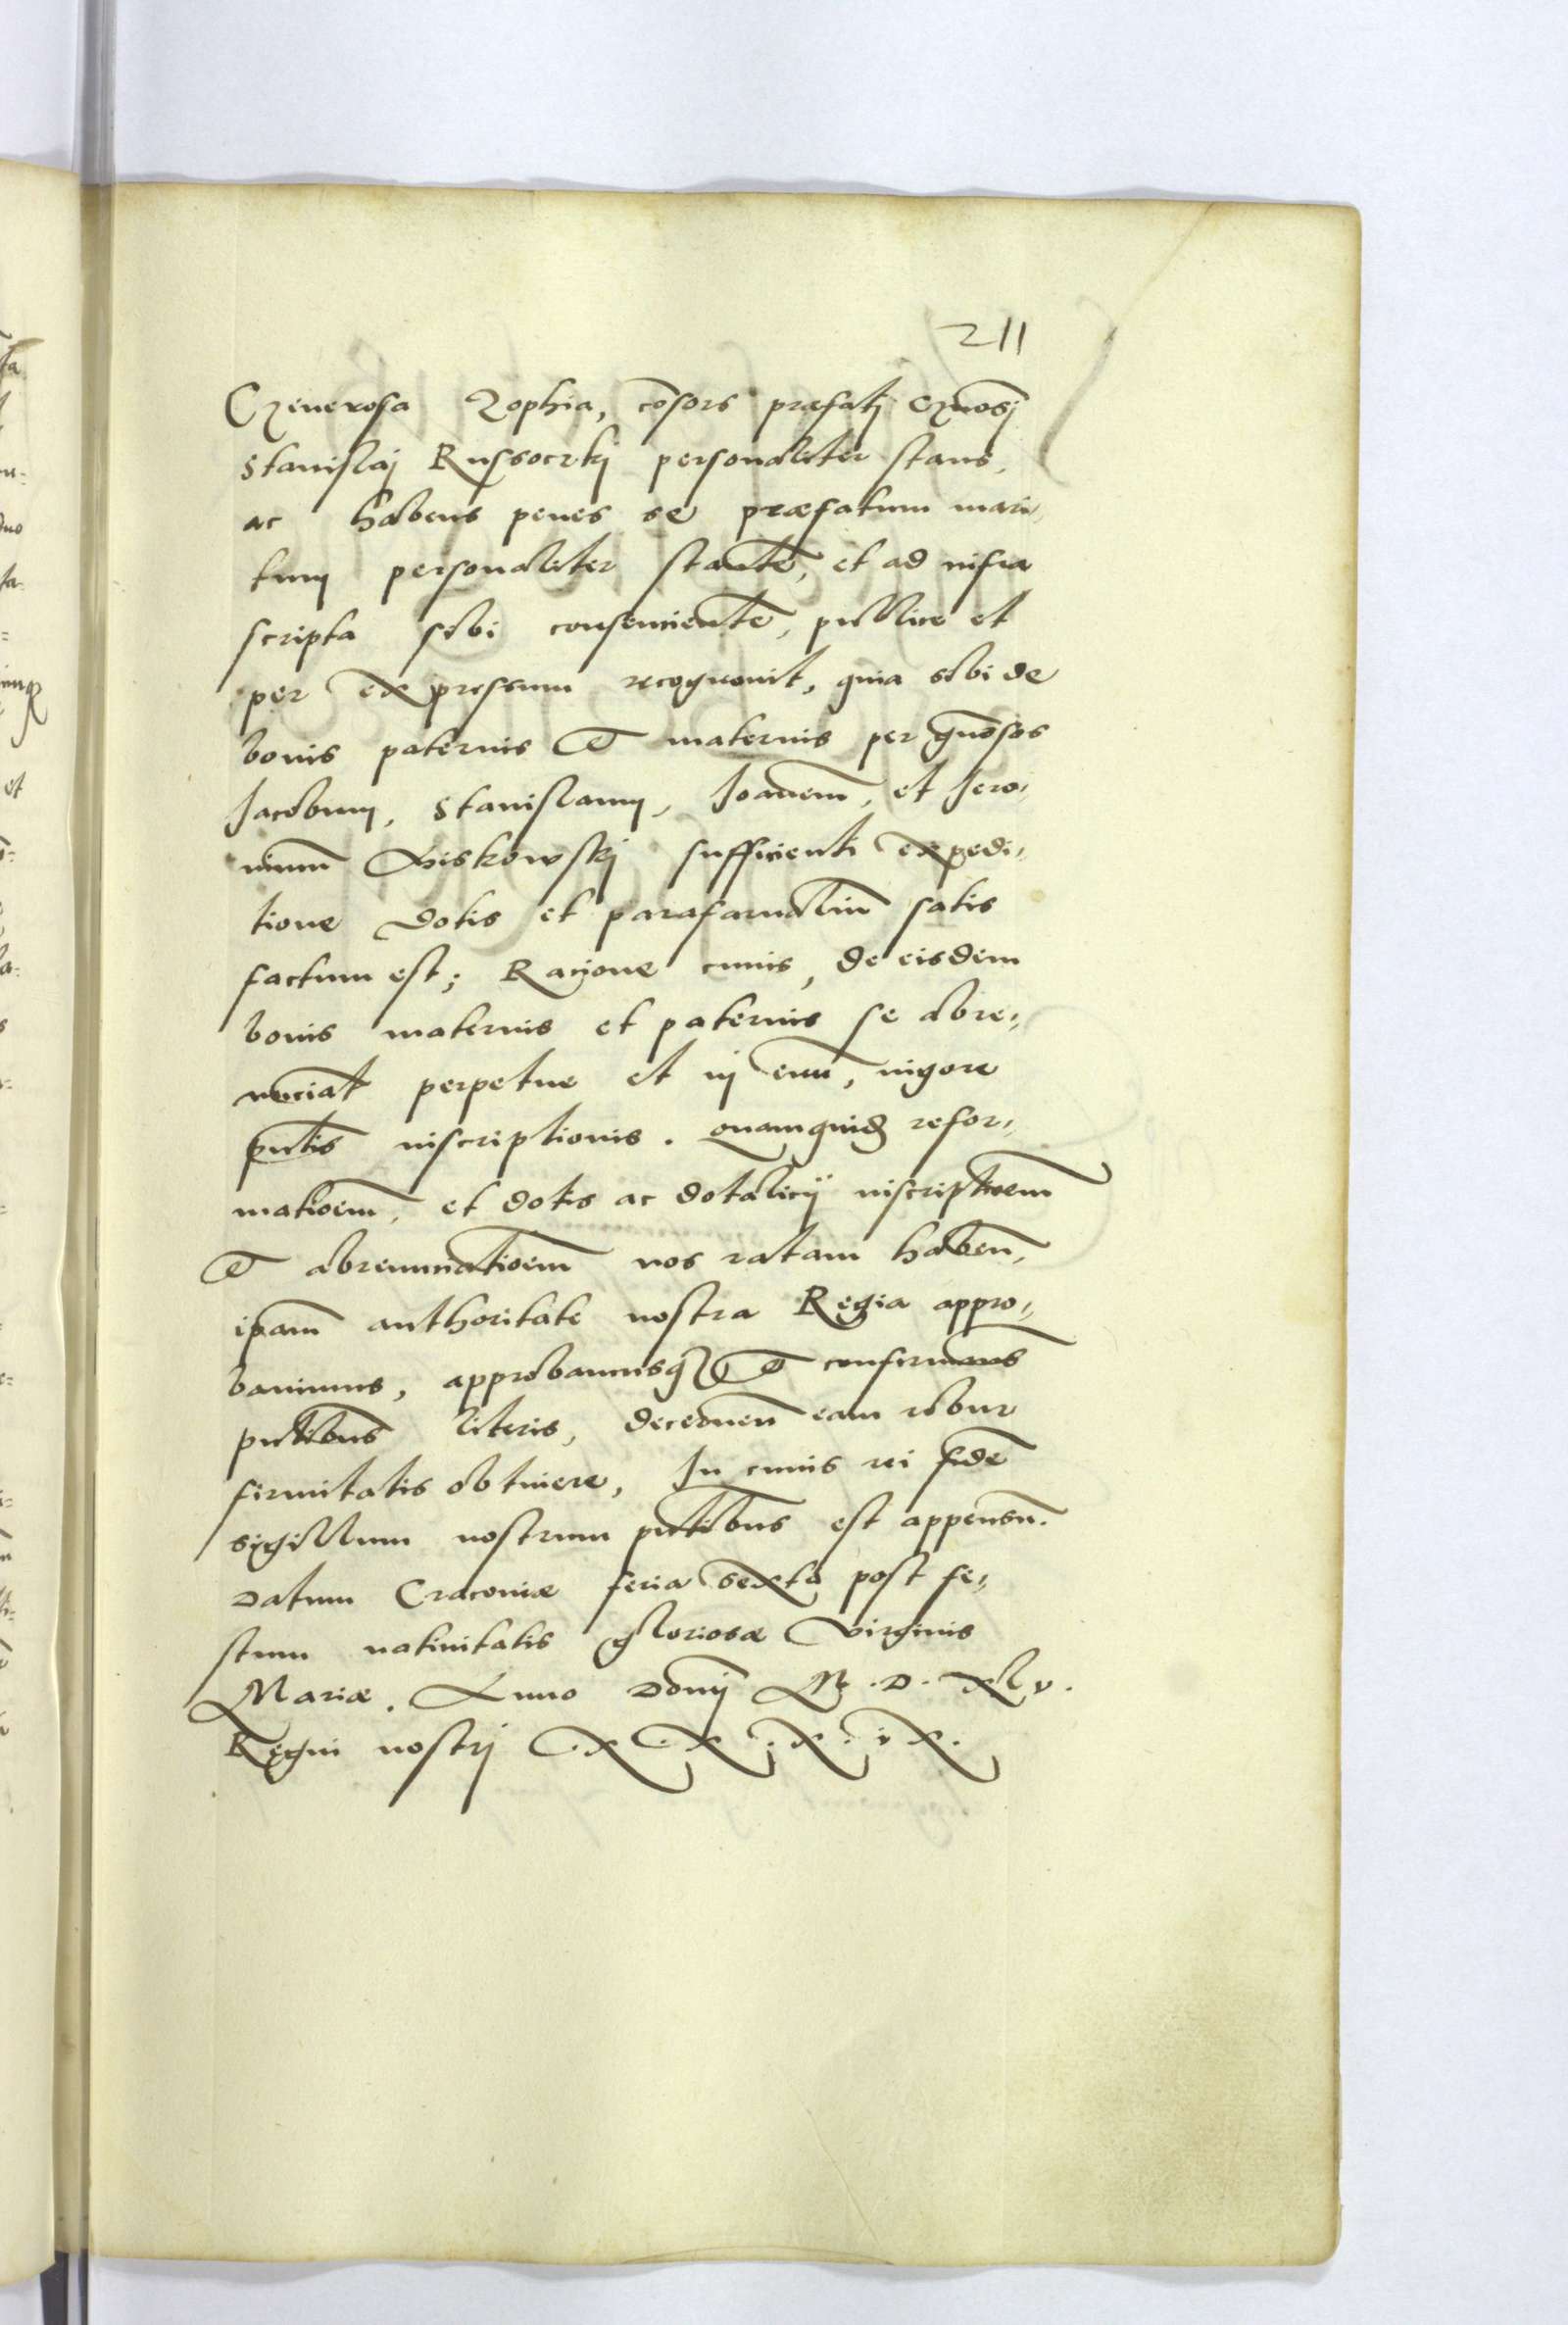 211
Generosa Zophia, cōsors præfatj Gnosj
Stanislaj Russoczkj personaliter stans,
ac habens penes se præfatum mari,,
tum personaliter stantē, et ad infra
scripta sibi consencientē, publice et
per expressum recognouit, quia sibi de
bonis paternis et maternis per gnosos
Jacobum, Stanislaum, Joanem̄, et Jero,,
nimum̄ Liskowskj sufficienti expedi,,
tione dotis et parafarnaliū satis
factum est; Racione cuius, de eisdem
bonis maternis et paternis se abre,,
nūciat perpetue et in euū, uigore
pntis inscriptionis. quamquidē refor,,
matioem̄, et dotis ac dotalicij inscriptioem̄
et abrenunciatioem̄ nos ratam haben̄,
ipam̄ authoritate nostra Regia appro,,
bauimus, approbamusq et confirmams
pntibus literis, decernen̄ eam robur
firmitatis obtinere, In cuius rei fidē
sigillum nostrum pntibus est appensū.
Datum Cracouiæ feria sexta post fe,,
stum natiuitatis gloriosæ virginis
Mariæ. Anno Domj M.D.xlv.
Regni nostrj .x.x.x.ix.